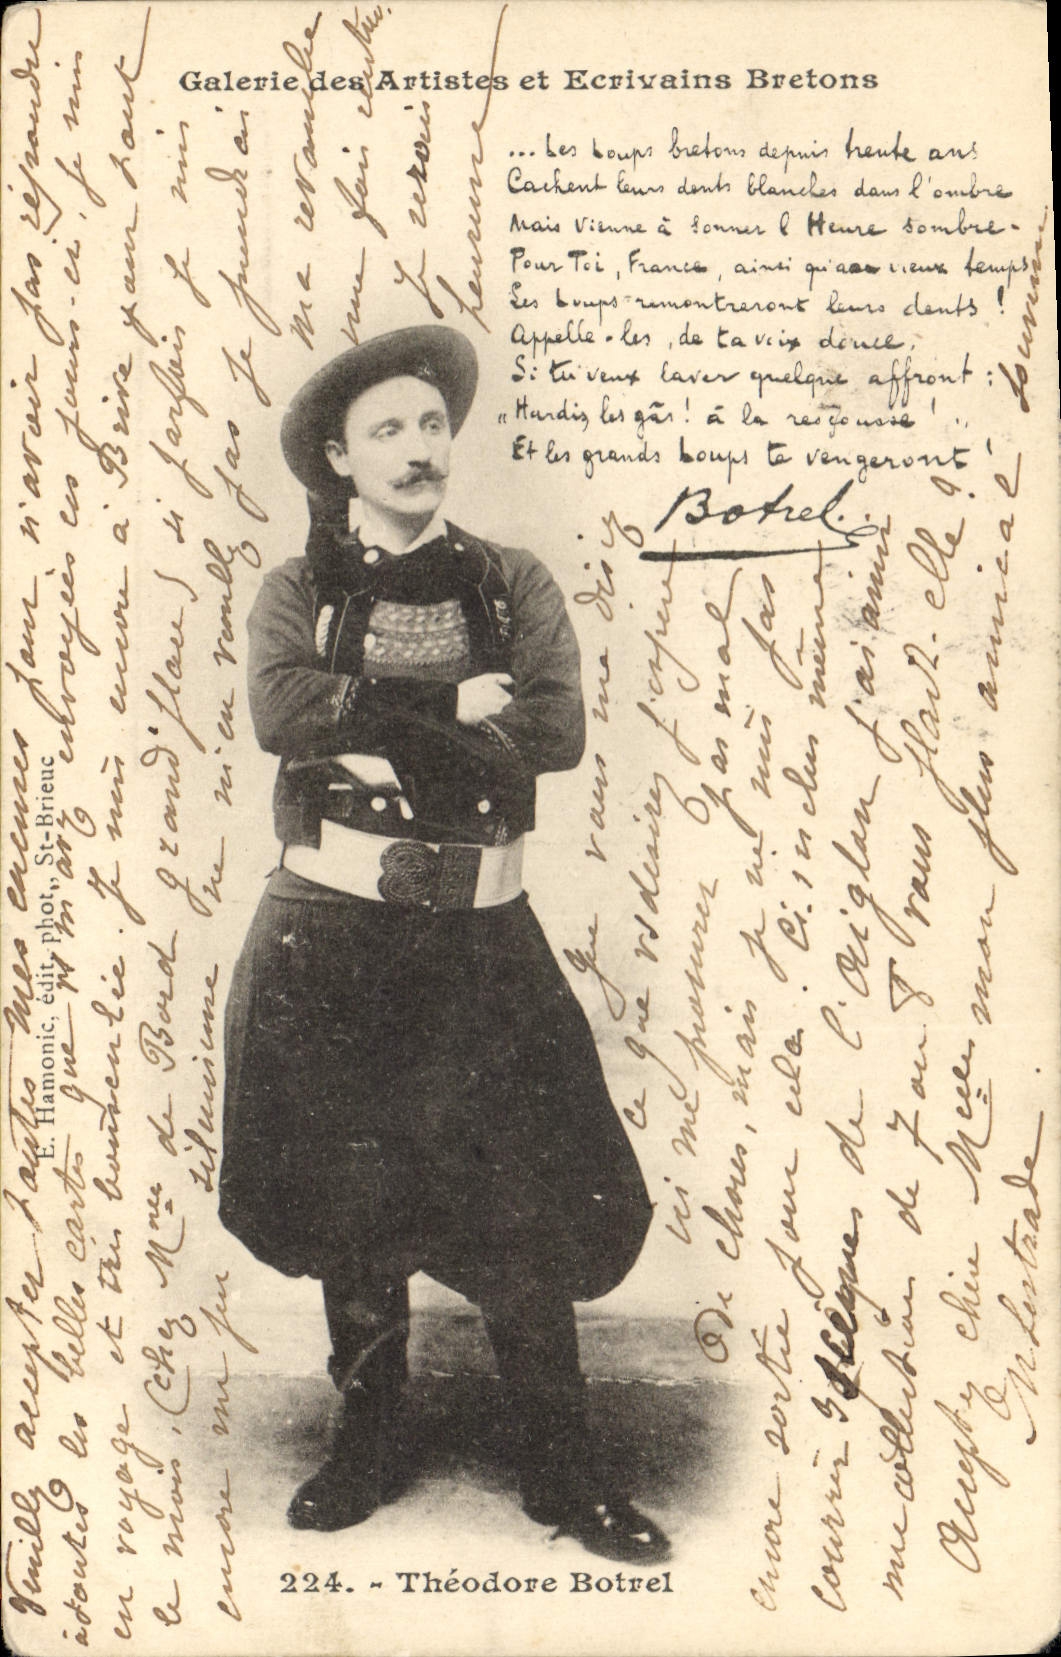 Galerie des Artistes et Ecrivains Bretons
... Les Loups bretons depuis trente ans
Cachent leurs dents blanches dans l'ombre
Mais Vienne à sonner l'Heure sombre -
Pour Toi, France, ainsi qu'aux vieux temps
Les Loups remontreront leurs dents !
Appelle-les, de ta voix douce,
Si tu veux laver quelque affront :
"Hardis les gâs ! à la rescousse ! "
Et les grands Loups te vengeront !
Botrel.
E. Hamonic, édit. phot., St-Brieuc
Veuillez accepter toutes mes excuses pour n'avoir pas répondu
à toutes les belles cartes que m'avez envoyées ces jours-ci, je suis
en voyage et très bousculée. Je suis encore à Brive pour tout
le mois, (chez Mme de Bord grand'place) si parfois je suis
encore un peu silencieuse ne m'en veuillez pas je prendrai
ma revanche
une fois rentrée.
Je reçois
heureuse
Que vous me disiez
ce que vs désirez j'espère
ici me procurer
de choses, mais je ne suis pas
encore sortie pour cela. Ci-inclus même
courrier 3 de l'Aiglon j'ai aussi
une collection de 7 ou 8 vous plaît-elle ?
Acceptez chère Melle mon plus amical souvenir.
M Lestrade.
224. - Théodore Botrel